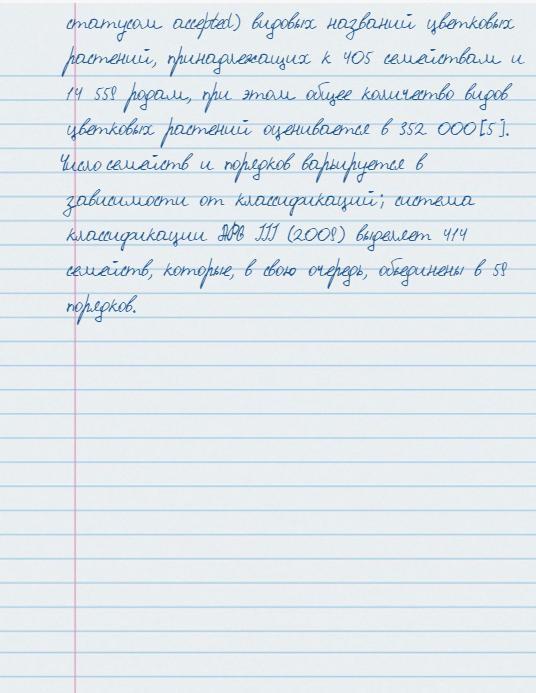 статусом accepted) видовых названий цветковых
растений, принадлежащих к 405 семействам и
14 559 родам, при этом общее количество видов
цветковых растений оценивается в 352 000[5].
Число семейств и порядков варьируется в
зависимости от классификаций; система
классификации APG III (2009) выделяет 414
семейств, которые, в свою очередь, объединены в 59
порядков.